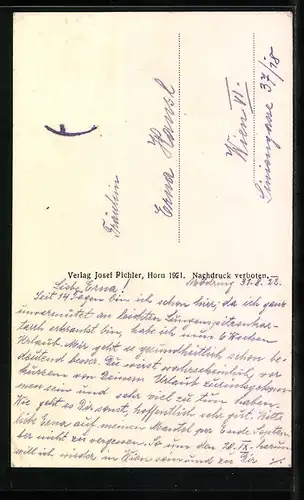 Fräulein
Erna Hansl
Wien VI.
Liniengasse 37/18
Verlag Josef Pichler, Horn 1921. Nachdruck verboten.
31.8.22.
Liebe Erna!
Seit 14 Tagen bin ich schon hier; da ich ganz
unvermutet an leichten Lungenspitzenkat-
tarrh erkrankt bin, habe ich nun 6 Wochen
Urlaub. Mir geht es gesundheitlich schon be-
deutend besser. Du wirst wahrscheinlich vor
kurzem von Deinem Urlaub zurückgekom-
men sein und sehr viel zu tun haben.
Wie geht es Dir sonst, hoffentlich sehr gut. Bitte
liebe Erna auf meinen Mantel gegen Ende Septem-
ber nicht zu vergessen. So um den 20. IX. herum
will ich wieder in Wien sein und zu Dir